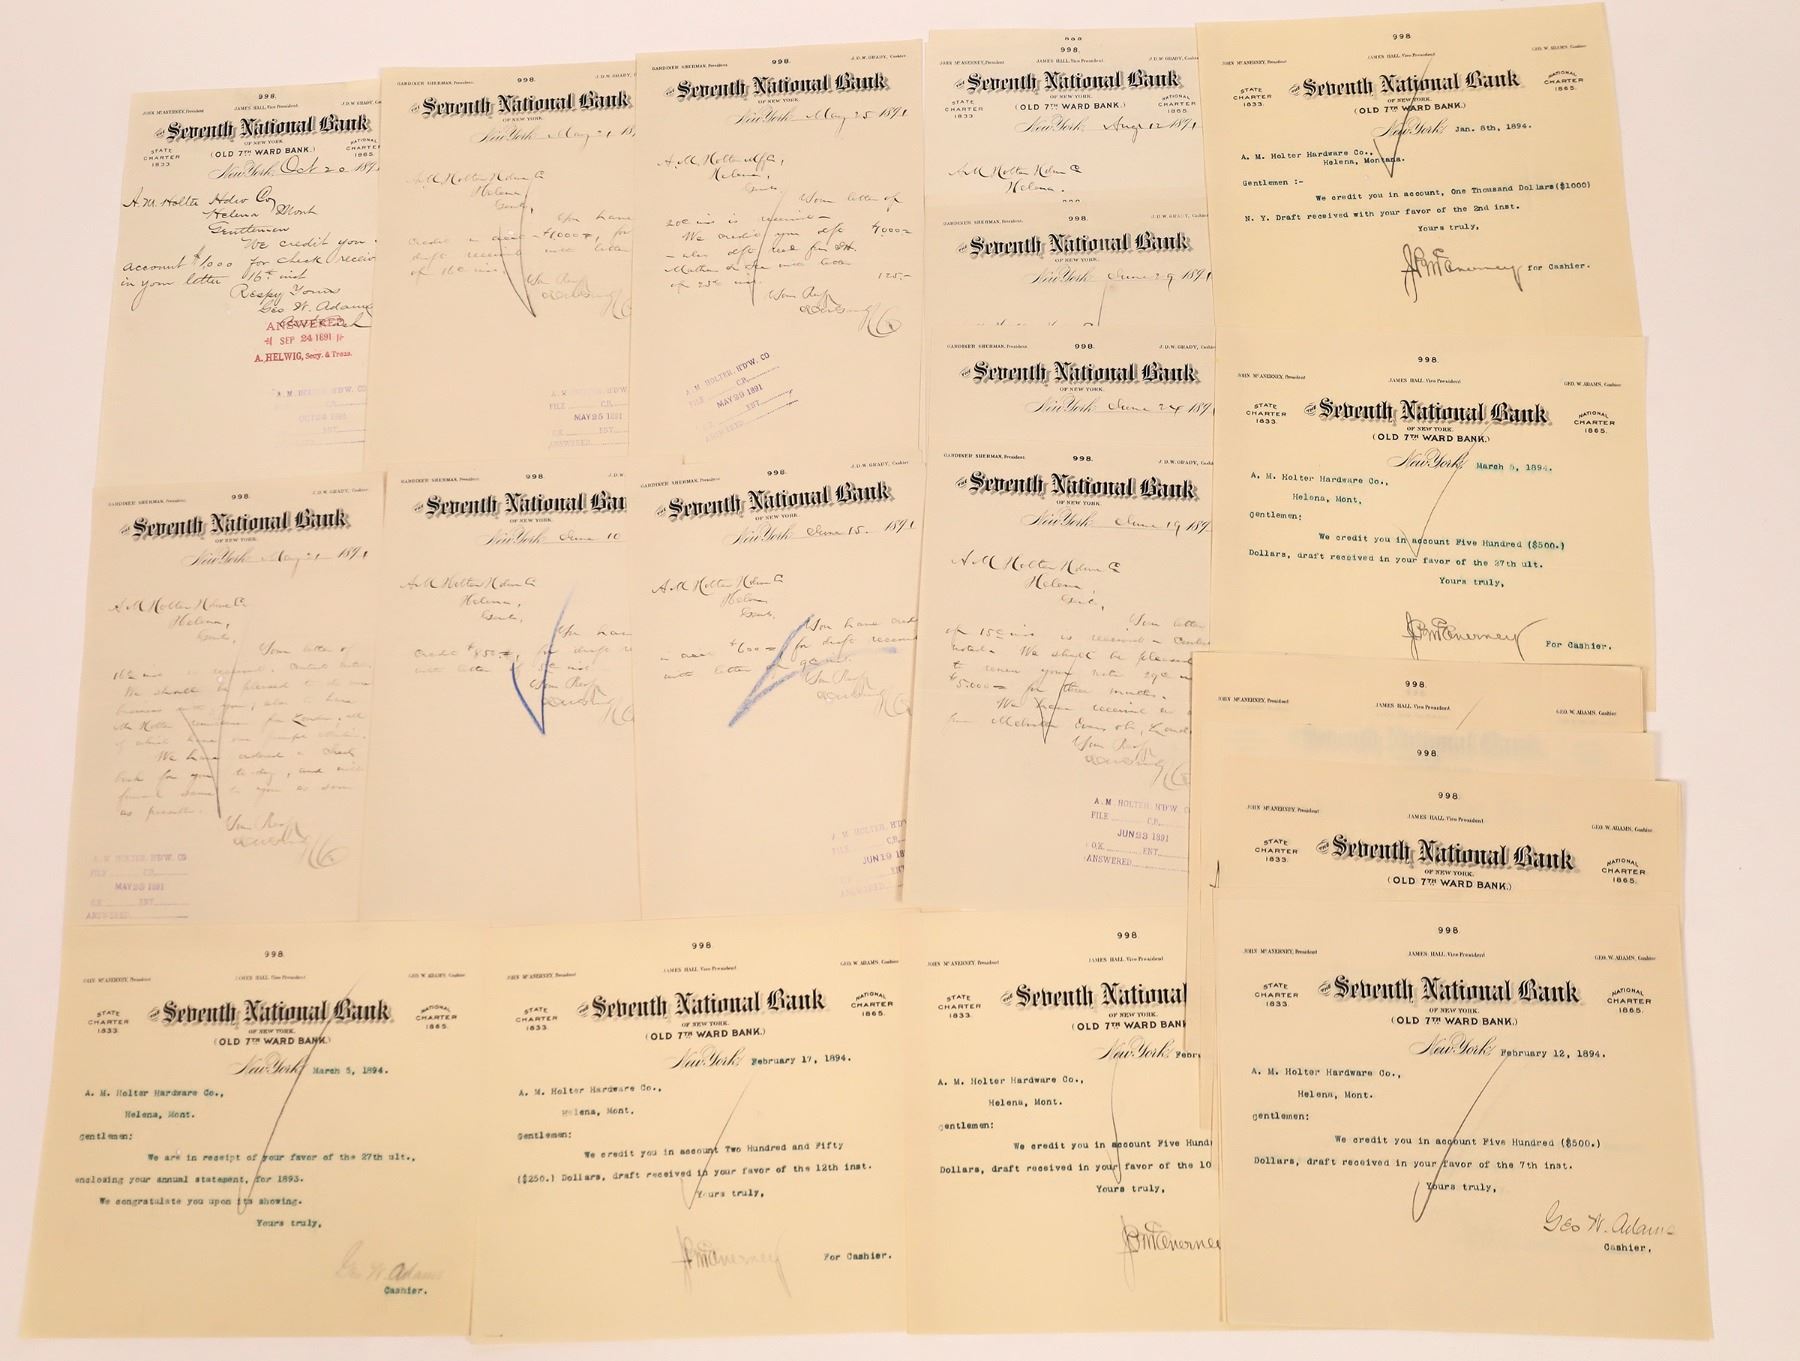 998.
JOHN McANERNEY, President
JAMES HALL, Vice President.
J.D.W. GRADY, Ca
STATE CHARTER 1833.
THE Seventh National Bank
NATIONAL CHARTER 1865.
OF NEW YORK.
(OLD 7TH WARD BANK.)
New York, Oct 20 189
A. M. Holter Hdw Co,
Helena Mont
Gentlemen
We credit you
account $1,000 for check receiv
in your letter 16th inst
Respy Yours
Geo W. Adams
ANSWERED
SEP 24 1891
A. HELWIG, Secy. & Treas.
A. M. HOLTER, H'DW. CO
GARDINER SHERMAN, President
998.
J.D.W. GRADY,
THE Seventh National Bank
OF NEW YORK.
New York, May 21 18
A M Holter Hdw Co
Helena,
Gents,
You have
credit in acct $4000, for
draft received with letter
of 16th inst.
Yours Respy
FILE C.R.
MAY 25 1891
O.K. ENT.
ANSWERED
GARDINER SHERMAN, President
998.
J.D.W. GRADY, Cashier
THE Seventh National Bank
OF NEW YORK.
New York, May 25 1891
A. M. Holter
Helena,
Gents,
Your letter of
20th ins is received
We credit you dft 4000
125.
Yours Respy
A. M. HOLTER, H'DW. CO
FILE C.R.
MAY 29 1891
O.K. ENT.
ANSWERED
998.
998.
JOHN McANERNEY, President
JAMES HALL, Vice President.
J.D.W. GRADY, Cas
THE Seventh National Bank
STATE CHARTER 1833.
OF NEW YORK.
(OLD 7TH WARD BANK.)
NATIONAL CHARTER 1865.
New York, Augt 12 1891
A. M. Holter Hdw Co
Helena.
GARDINER SHERMAN, President
998.
J.D.W. GRADY, Cashi
THE Seventh National Bank
OF NEW YORK.
New York, June 29 1891
GARDINER SHERMAN, President
998.
J.D.W. GRADY, Cashie
THE Seventh National Bank
OF NEW YORK.
New York, June 24 1891
GARDINER SHERMAN, President
998.
J.D.W. GRADY, Cashi
THE Seventh National Bank
OF NEW YORK.
New York, June 19 189
A. M Holter Hdw Co
Helena,
Gents,
Your letter
of 15th ins is received
noted. We shall be pleased
to renew your note 29th
$5.000 for three months.
We have received
Yours Respy
A. M. HOLTER, H'DW. C
FILE C.R.
JUN 23 1891
O.K. ENT.
ANSWERED
998.
JOHN McANERNEY, President
JAMES HALL, Vice President
GEO. W. ADAMS, Cashier
STATE CHARTER 1833.
THE Seventh National Bank
NATIONAL CHARTER 1865.
OF NEW YORK.
(OLD 7TH WARD BANK.)
New York, Jan. 8th, 1894.
A. M. Holter Hardware Co.,
Helena, Montana.
Gentlemen :-
We credit you in account, One Thousand Dollars($1000)
N. Y. Draft received with your favor of the 2nd inst.
Yours truly,
J B McEnerney for Cashier.
998.
JOHN McANERNEY, President
JAMES HALL, Vice President
GEO. W. ADAMS, Cashier
STATE CHARTER 1833.
THE Seventh National Bank
NATIONAL CHARTER 1865.
OF NEW YORK.
(OLD 7TH WARD BANK.)
New York, March 5, 1894.
A. M. Holter Hardware Co.,
Helena, Mont.
Gentlemen:
We credit you in account Five Hundred ($500.)
Dollars, draft received in your favor of the 27th ult.
Yours truly,
J B McEnerney
For Cashier.
998.
JOHN McANERNEY, President
JAMES HALL, Vice President
GEO. W. ADAMS, Cashier
998.
998.
JOHN McANERNEY, President
JAMES HALL, Vice President
GEO. W. ADAMS, Cashier
STATE CHARTER 1833.
THE Seventh National Bank
NATIONAL CHARTER 1865.
OF NEW YORK.
(OLD 7TH WARD BANK.)
GARDINER SHERMAN, President
998.
J.D.W. GRADY, Cashier
THE Seventh National Bank
OF NEW YORK.
New York, May 21 1891
A M Holter Hdw Co
Helena,
Gents,
Your letter of
16th ins is received. Contents
We should be pleased to
business with you, also have
We have ordered a check
book for you to day, and will
forward same to you as soon
as possible.
Yours Respy
A. M. HOLTER, H'DW. CO
FILE C.R.
MAY 25 1891
O.K. ENT.
ANSWERED
GARDINER SHERMAN, President
998
J.D.W.
THE Seventh National Ban
OF NEW YORK.
New York, June 10
A. M Holter Hdw Co
Helena,
Gents,
You have
credit $850, for draft r
with letter of 5th inst
Yours Respy
GARDINER SHERMAN, President
998.
J.D.W. GRADY, Cashier
THE Seventh National Bank
OF NEW YORK.
New York, June 15. 1891
A. M Holter Hdw Co
Helena
Gents,
You have cred
in acct $600 for draft received
with letter of 9th inst.
Yours Respy
A. M. HOLTER, H'D
FILE C.R.
JUN 19 18
ANSWERED
998.
JOHN McANERNEY, President
JAMES HALL, Vice President
GEO. W. ADAMS, Cashier
STATE CHARTER 1833.
THE Seventh National Bank
NATIONAL CHARTER 1865.
OF NEW YORK.
(OLD 7TH WARD BANK.)
New York, March 5, 1894.
A. M. Holter Hardware Co.,
Helena, Mont.
Gentlemen:
We are in receipt of your favor of the 27th ult.,
enclosing your annual statement, for 1893.
We congratulate you upon its showing.
Yours truly,
Geo W. Adams
Cashier.
998.
JOHN McANERNEY, President
JAMES HALL, Vice President
GEO. W. ADAMS, Cashier
STATE CHARTER 1833.
THE Seventh National Bank
NATIONAL CHARTER 1865.
OF NEW YORK.
(OLD 7TH WARD BANK.)
New York, February 17, 1894.
A. M. Holter Hardware Co.,
Helena, Mont.
Gentlemen:
We credit you in account Two Hundred and Fifty
($250.) Dollars, draft received in your favor of the 12th inst.
Yours truly,
J B McEnerney
For Cashier.
998.
JOHN McANERNEY, President
JAMES HALL, Vice President
STATE CHARTER 1833.
THE Seventh National
OF NEW YORK.
(OLD 7TH WARD BANK
New York, Febru
A. M. Holter Hardware Co.,
Helena, Mont.
Gentlemen:
We credit you in account Five Hund
Dollars, draft received in your favor of the 10
Yours truly,
J B McEnerney
998.
JOHN McANERNEY, President
JAMES HALL, Vice President
GEO. W. ADAMS, Cashier
STATE CHARTER 1833.
THE Seventh National Bank
NATIONAL CHARTER 1865.
OF NEW YORK.
(OLD 7TH WARD BANK.)
New York, February 12, 1894.
A. M. Holter Hardware Co.,
Helena, Mont.
Gentlemen:
We credit you in account Five Hundred ($500.)
Dollars, draft received in your favor of the 7th inst.
Yours truly,
Geo W. Adams
Cashier,